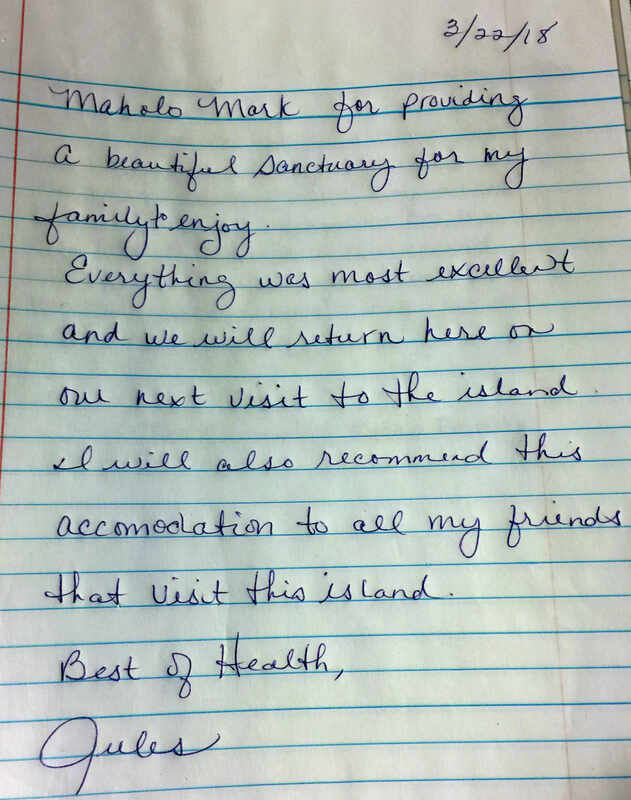 3/22/18
Maholo Mark for providing
a beautiful sanctuary for my
family to enjoy.
Everything was most excellent
and we will return here on
our next visit to the island.
I will also recommend this
accomodation to all my friends
that visit this island.
Best of Health,
Jules